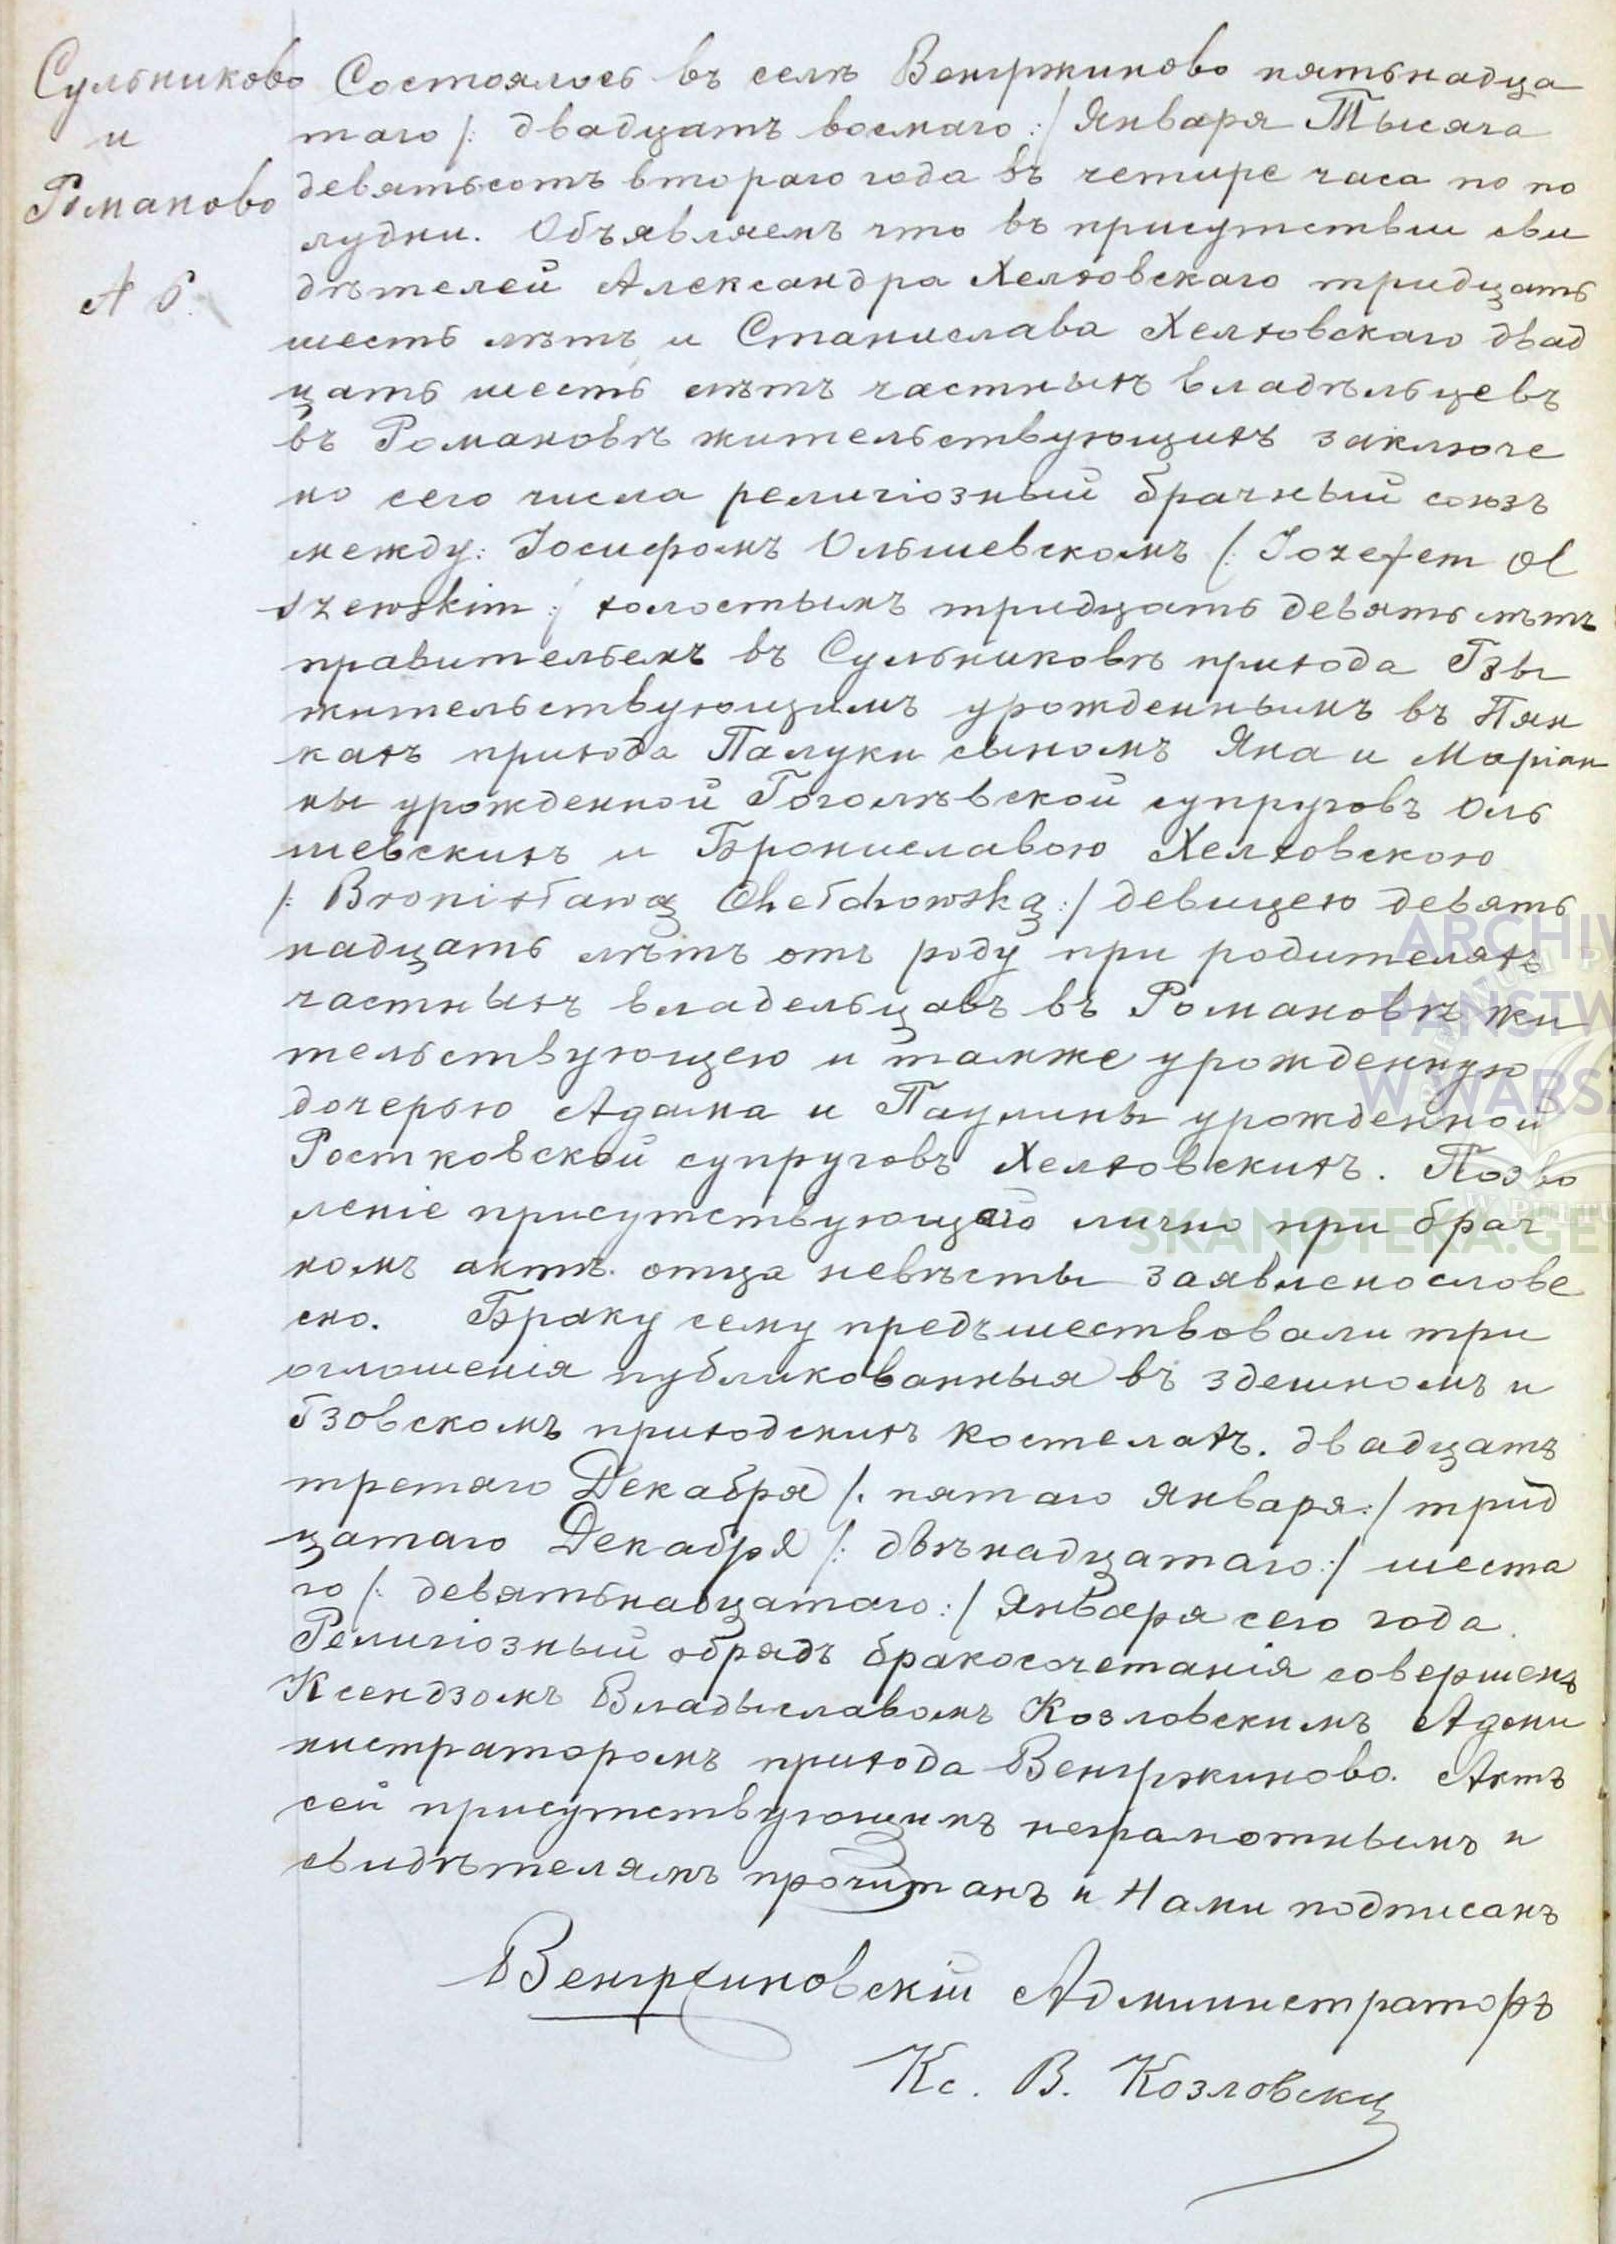 Сульниково
и
Романово
№ 6.
Состоялось въ селѣ Венгржиново пятьнадца
таго /: двадцатъ восмаго :/ Января Тысяча
девятьсотъ втораго года въ четире часа по по
лудни. Объявляемъ что въ присутствіи сви
дѣтелей Александра Хелховскаго тридцать
шесть лѣтъ и Станислава Хелховскаго двад
цать шесть лѣтъ частныхъ владѣльцевъ
въ Романовѣ жительствующихъ заключе
но сего числа религіозный брачный союзъ
между: Іосифомъ Ольшевскомъ /: Iozefem Ol
szewskim :/ холостымъ тридцать девять лѣтъ
правительемъ въ Сульниковѣ прихода Гзы
жительствующимъ урожденнымъ въ Пян
кахъ прихода Палуки сыномъ Яна и Маріан
ны урожденной Гоголѣвской супруговъ Оль
шевскихъ и Брониславою Хелховскою
/: Bronisławą Chełchowską :/ девицею девять
надцать лѣтъ отъ роду при родителяхъ
частныхъ владельцовъ въ Романовѣ жи
тельствующею и тамже урожденную
дочерью Адама и Паулины урожденной
Ростковской супруговъ Хелховскихъ. Позво
леніе присутствующаго лично при брач
номъ актѣ отца невѣсты заявлено слове
сно. Браку сему предъшествовали три
оглошенія публикованныя въ здешномъ и
Гзовскомъ приходскихъ костелахъ. двадцать
третаго Декабря /: пятаго Января :/ трид
цатаго Декабря /: двѣнадцатаго :/ шеста
го /: девятьнадцатаго :/ Января сего года.
Религіозный обрядъ бракосочетанія совершенъ
Ксендзомъ Владыславомъ Козловскимъ Адми
нистраторомъ прихода Венгржиново. Актъ
сей присутствующимъ неграмотнымъ и
свидѣтелямъ прочитанъ и Нами подписанъ
Венгржиновскій Администраторъ
Кс. В. Козловскій
ARCHIW
PAŃSTW
W WARSZ
SKANOTEKA.GE